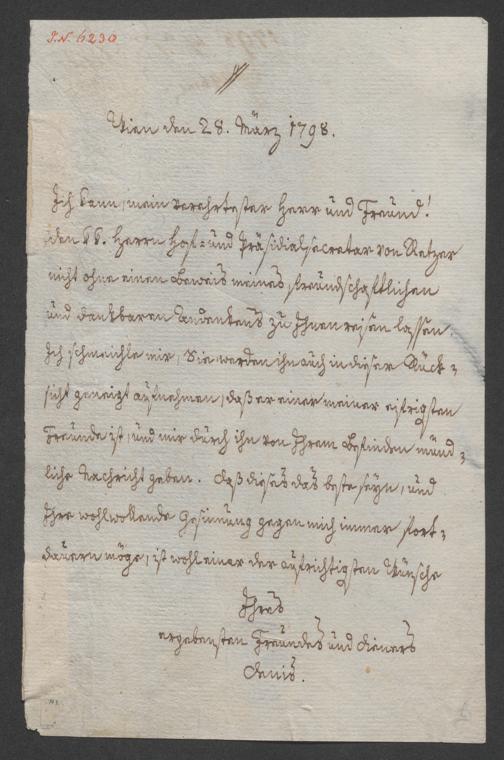 I.N. 6230
Wien den 28. März 1798.
Ich kann, mein verehrtester Herr und Freund!
den Herrn Hof- und Präsidialsecretär von Retzer
nicht ohne einen Beweis meines freundschaftlichen
und dankbaren Andenkens zu Ihnen reisen lassen.
Ich schmeichle mir, Sie werden ihn auch in dieser Rück-
sicht geneigt aufnehmen, daß er einer meiner eifrigsten
Freunde ist, und mir durch ihn von Ihrem Befinden münd-
liche Nachricht geben. Daß dieses das beste seyn, und
Ihre wohlwollende Gesinnung gegen mich immer fort-
dauern möge, ist wohl einer der aufrichtigsten Wünsche
Ihres
ergebensten Freundes und Dieners
Denis.